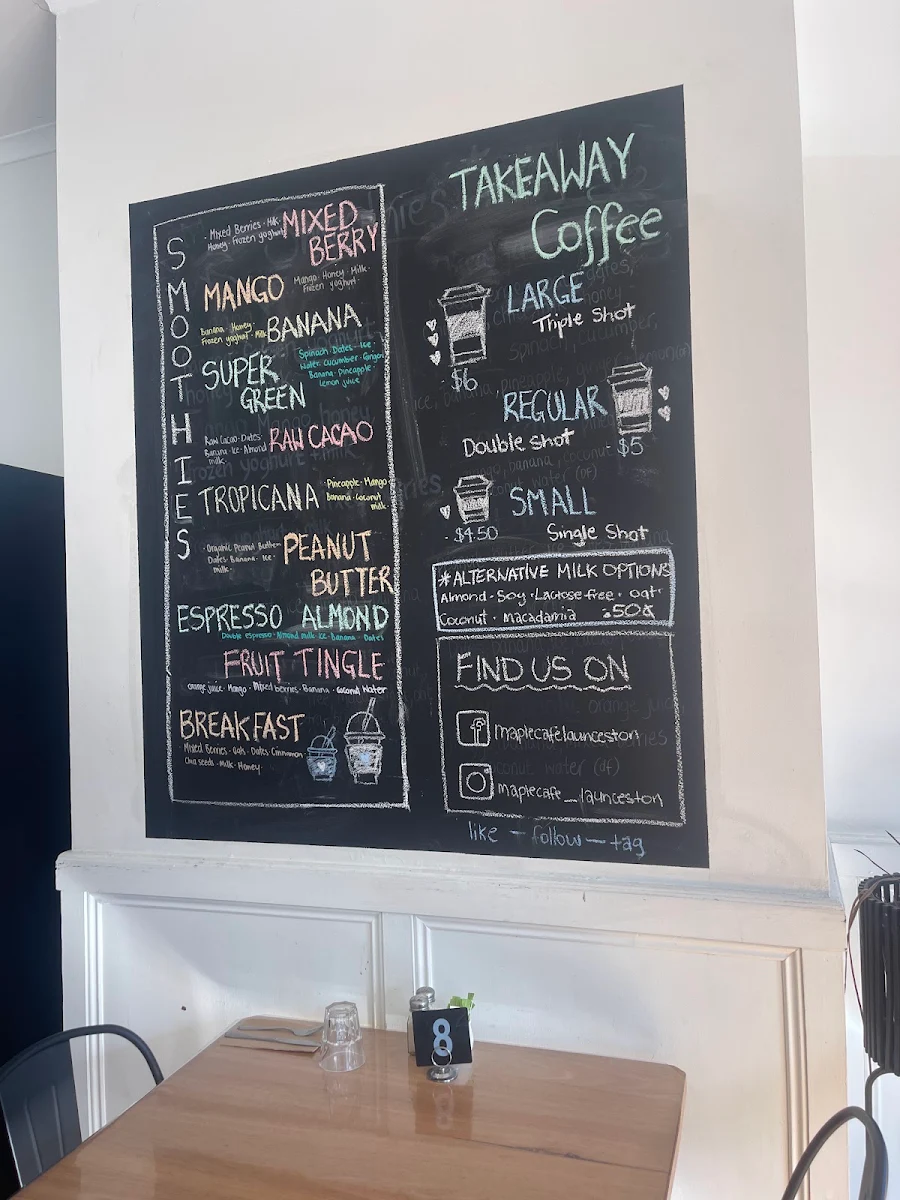 SMOOTHIES
· Mixed Berries · Milk ·
Honey · Frozen yoghurt
MIXED
BERRY
MANGO
Mango · Honey · Milk ·
Frozen yoghurt ·
Banana · Honey ·
Frozen yoghurt · Milk
BANANA
SUPER
GREEN
Spinach · Dates · Ice ·
Water · cucumber · Ginger
Banana · pineapple ·
Lemon juice
Raw Cacao · Dates ·
Banana · Ice · Almond
milk ·
RAW CACAO
TROPICANA
· Pineapple · Mango
Banana · Coconut
milk ·
· Organic Peanut Butter
Dates · Banana · Ice ·
milk ·
PEANUT
BUTTER
ESPRESSO ALMOND
Double espresso · Almond milk · Ice · Banana · Dates
FRUIT TINGLE
orange juice · Mango · Mixed berries · Banana · Coconut Water
BREAKFAST
· Mixed Berries · Oats · Dates · Cinnamon
Chia seeds · Milk · Honey ·
TAKEAWAY
Coffee
LARGE
Triple Shot
$6
REGULAR
Double shot
$5
SMALL
· $4.50
Single Shot
*ALTERNATIVE MILK OPTIONS
Almond · Soy · Lactose-free · oat ·
Coconut · macadamia .50¢
FIND US ON
f maplecafelaunceston
maplecafe_launceston
like — follow — tag
8